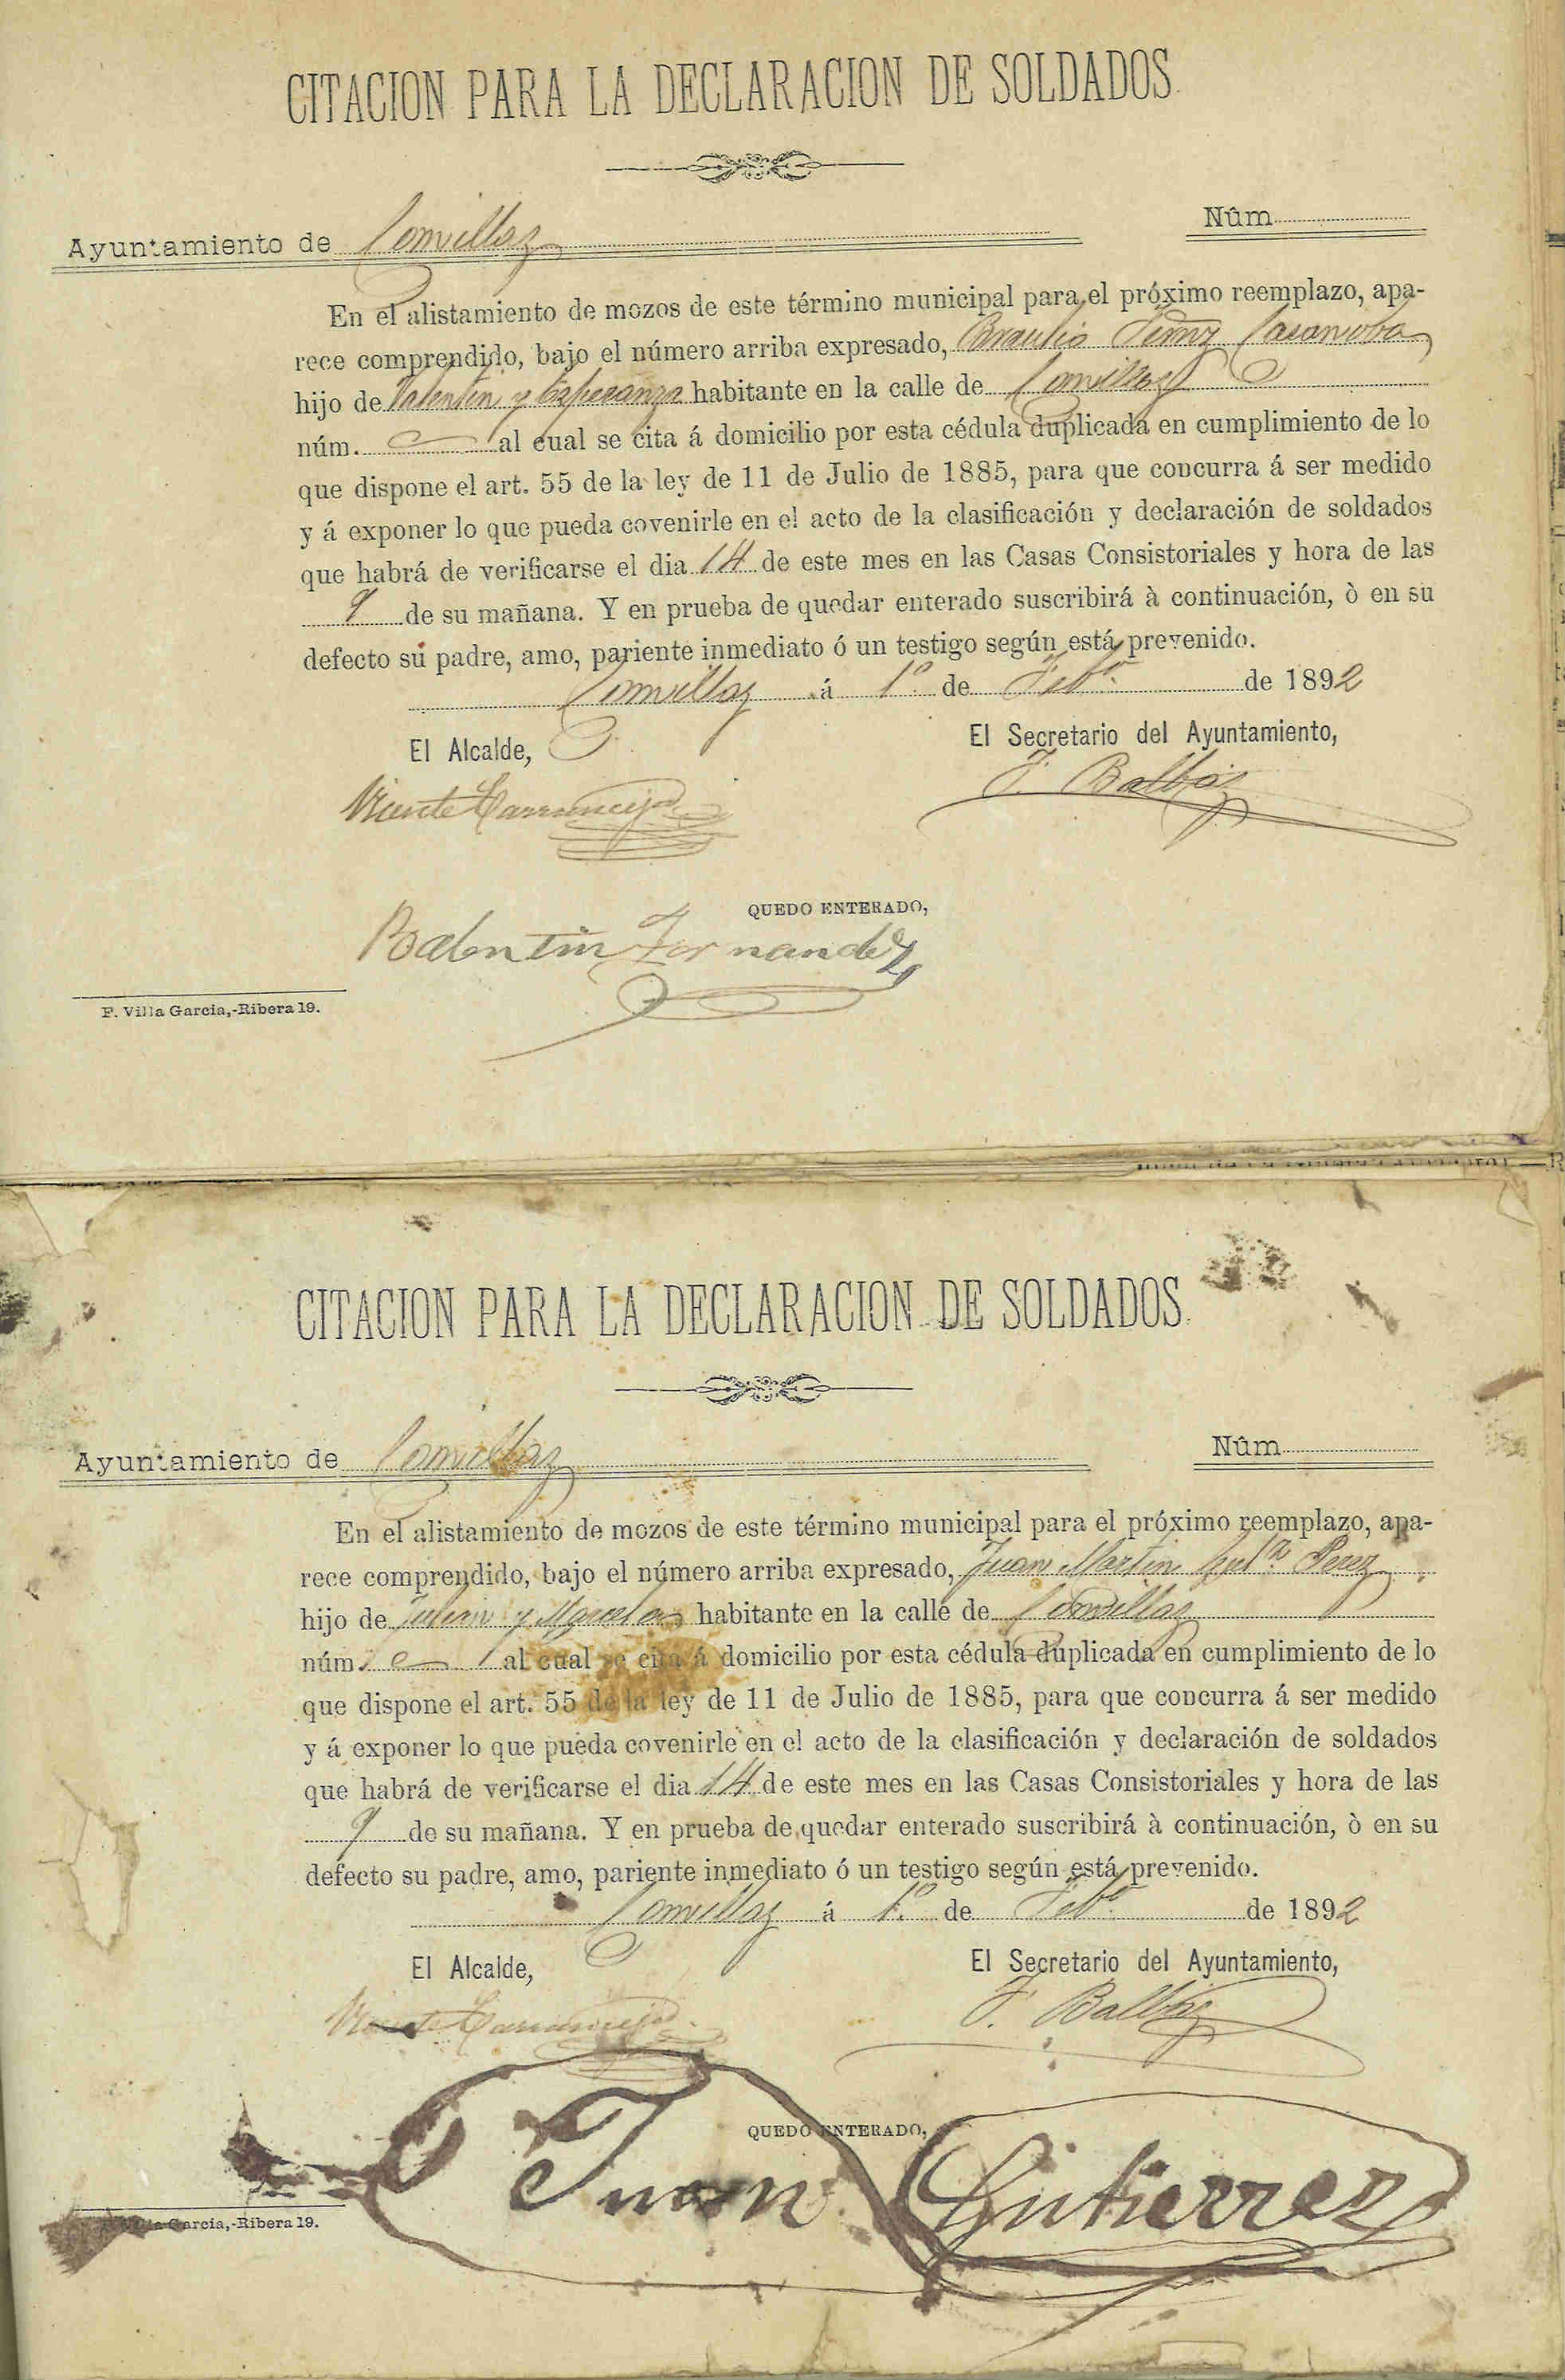 CITACION PARA LA DECLARACION DE SOLDADOS.
Ayuntamiento de Comillas Núm.
En el alistamiento de mozos de este término municipal para el próximo reemplazo, apa-
rece comprendido, bajo el número arriba expresado, Braulio Fernz Casanoba
hijo de Valentin y Esperanza habitante en la calle de
núm. al cual se cita á domicilio por esta cédula duplicada en cumplimiento de lo
que dispone el art. 55 de la ley de 11 de Julio de 1885, para que concurra á ser medido
y á exponer lo que pueda covenirle en el acto de la clasificación y declaración de soldados
que habrá de verificarse el dia 14 de este mes en las Casas Consistoriales y hora de las
9 de su mañana. Y en prueba de quedar enterado suscribirá à continuación, ò en su
defecto su padre, amo, pariente inmediato ó un testigo según está prevenido.
á 1.º de Feb.º de 1892
El Alcalde, El Secretario del Ayuntamiento,
Vicente F. Balbás
QUEDO ENTERADO,
Balentin Fernandez
F. Villa Garcia,-Ribera 19.
CITACION PARA LA DECLARACION DE SOLDADOS.
Ayuntamiento de Núm.
En el alistamiento de mozos de este término municipal para el próximo reemplazo, apa-
rece comprendido, bajo el número arriba expresado, Juan Martin Gutz Perez
hijo de Julian y Marcela habitante en la calle de
núm. al cual se cita á domicilio por esta cédula duplicada en cumplimiento de lo
que dispone el art. 55 de la ley de 11 de Julio de 1885, para que concurra á ser medido
y á exponer lo que pueda covenirle en el acto de la clasificación y declaración de soldados
que habrá de verificarse el dia 14 de este mes en las Casas Consistoriales y hora de las
9 de su mañana. Y en prueba de quedar enterado suscribirá à continuación, ò en su
defecto su padre, amo, pariente inmediato ó un testigo según está prevenido.
á 1.º de Feb.º de 1892
El Alcalde, El Secretario del Ayuntamiento,
Vicente F. Balbás
QUEDO ENTERADO,
Juan Gutierrez
Garcia,-Ribera 19.